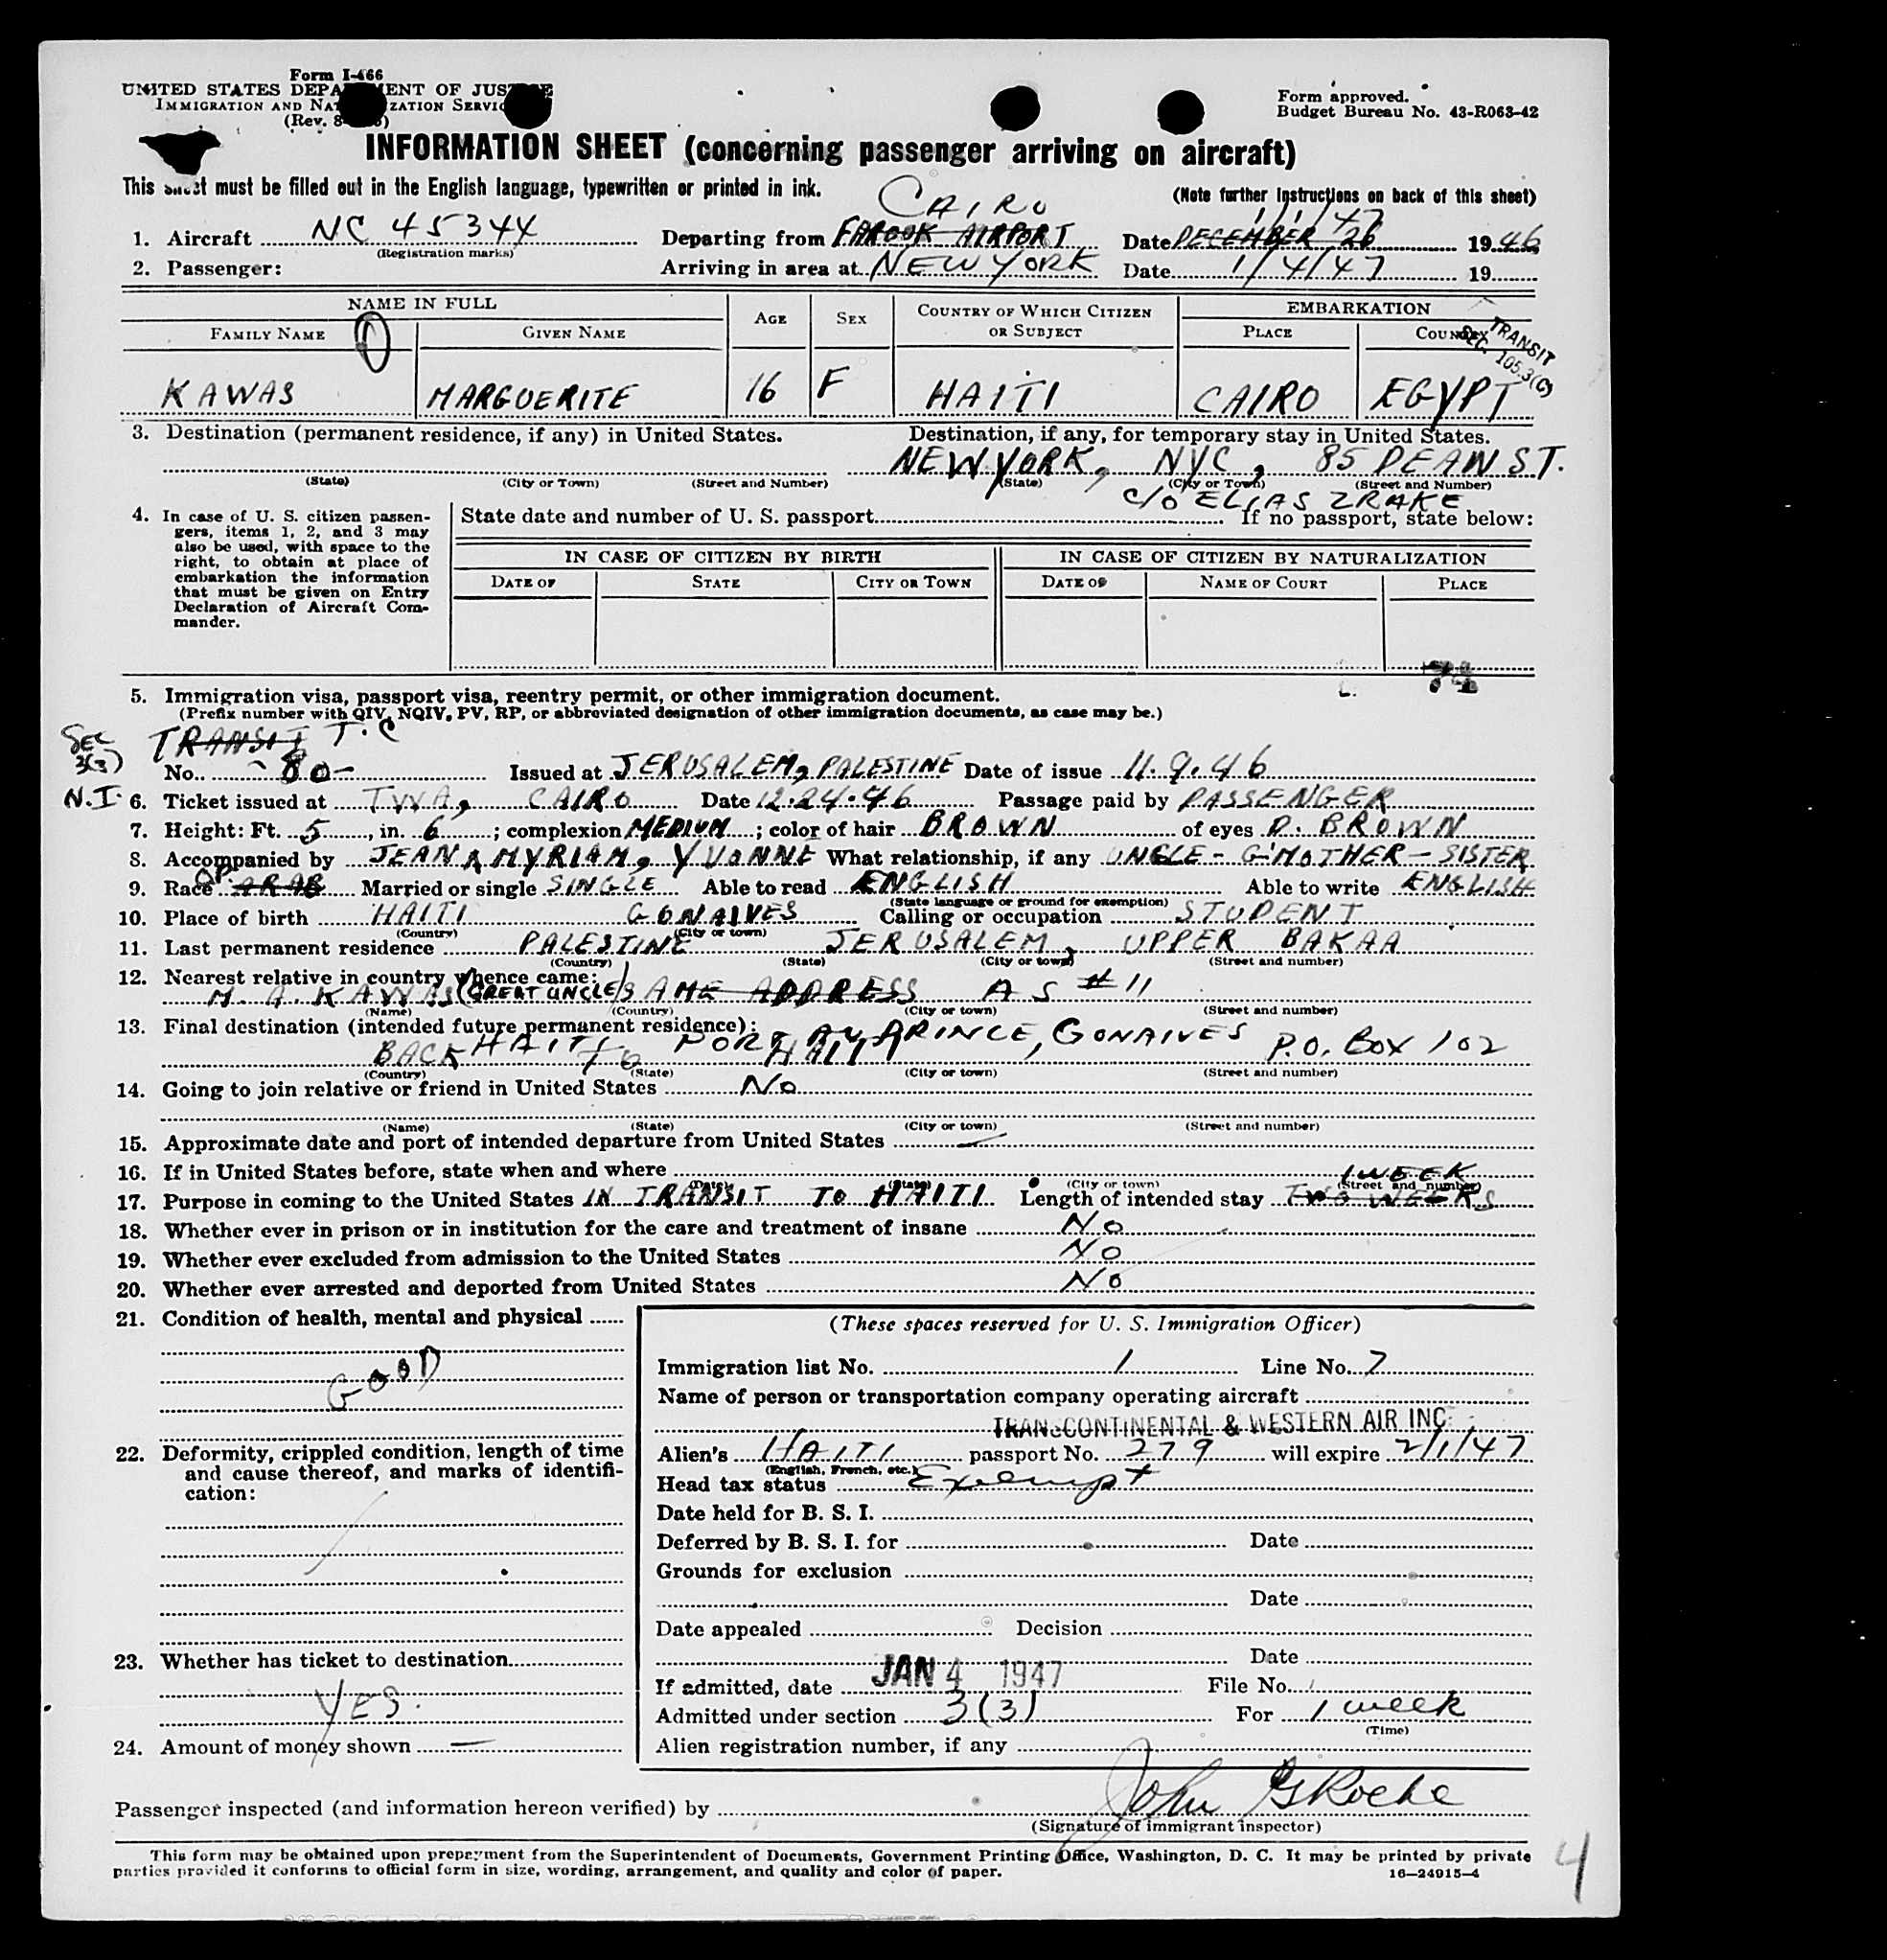 Form I-466
UNITED STATES DEPARTMENT OF JUSTICE
IMMIGRATION AND NATURALIZATION SERVICE
(Rev. 8
Form approved.
Budget Bureau No. 43-R063-42
INFORMATION SHEET (concerning passenger arriving on aircraft)
This sheet must be filled out in the English language, typewritten or printed in ink.
(Note further instructions on back of this sheet)
CAIRO 1/1/47
1. Aircraft NC 45344 Departing from FAROUK AIRPORT Date DECEMBER 26 1946
(Registration marks)
2. Passenger: Arriving in area at NEW YORK Date 1/4/47 19
NAME IN FULL AGE SEX COUNTRY OF WHICH CITIZEN OR SUBJECT EMBARKATION
FAMILY NAME GIVEN NAME PLACE COUNTRY
TRANSIT
SEC. 105.3(C)
KAWAS MARGUERITE 16 F HAITI CAIRO EGYPT
3. Destination (permanent residence, if any) in United States. Destination, if any, for temporary stay in United States.
NEW YORK, NYC, 85 DEAN ST.
(State) (City or Town) (Street and Number) (State) (City or Town) (Street and Number)
C/O ELIAS ZRAKE
4. In case of U. S. citizen passengers, items 1, 2, and 3 may also be used, with space to the right, to obtain at place of embarkation the information that must be given on Entry Declaration of Aircraft Commander.
State date and number of U. S. passport If no passport, state below:
IN CASE OF CITIZEN BY BIRTH IN CASE OF CITIZEN BY NATURALIZATION
DATE OF STATE CITY OR TOWN DATE OF NAME OF COURT PLACE
5. Immigration visa, passport visa, reentry permit, or other immigration document.
(Prefix number with QIV, NQIV, PV, RP, or abbreviated designation of other immigration documents, as case may be.)
SEC 3(3) TRANSIT T.C
No. -80- Issued at JERUSALEM, PALESTINE Date of issue 11.9.46
N.I. 6. Ticket issued at TWA, CAIRO Date 12.24.46 Passage paid by PASSENGER
7. Height: Ft. 5, in. 6; complexion MEDIUM; color of hair BROWN of eyes D. BROWN
8. Accompanied by JEAN, MYRIAM, YVONNE What relationship, if any UNCLE - G'MOTHER - SISTER
9. Race ARAB Married or single SINGLE Able to read ENGLISH Able to write ENGLISH
(State language or ground for exemption)
10. Place of birth HAITI GONAIVES Calling or occupation STUDENT
(Country) (City or town)
11. Last permanent residence PALESTINE JERUSALEM, UPPER BAKAA
(Country) (State) (City or town) (Street and number)
12. Nearest relative in country whence came:
M. A. KAWAS (GREAT UNCLE) SAME ADDRESS AS #11
(Name) (Country) (City or town) (Street and number)
13. Final destination (intended future permanent residence):
HAITI PORT AU PRINCE, GONAIVES P.O. BOX 102
BACK TO HAITI
(Country) (State) (City or town) (Street and number)
14. Going to join relative or friend in United States No
(Name) (State) (City or town) (Street and number)
15. Approximate date and port of intended departure from United States —
16. If in United States before, state when and where
(Date) (State) (City or town) (Street and number)
1 WEEK
17. Purpose in coming to the United States IN TRANSIT TO HAITI Length of intended stay TWO WEEKS
18. Whether ever in prison or in institution for the care and treatment of insane No
19. Whether ever excluded from admission to the United States NO
20. Whether ever arrested and deported from United States No
21. Condition of health, mental and physical
GOOD
22. Deformity, crippled condition, length of time and cause thereof, and marks of identification:
23. Whether has ticket to destination
YES.
24. Amount of money shown —
(These spaces reserved for U. S. Immigration Officer)
Immigration list No. 1 Line No. 7
Name of person or transportation company operating aircraft
TRANSCONTINENTAL & WESTERN AIR INC.
Alien's HAITI passport No. 279 will expire 2/1/47
(English, French, etc.)
Head tax status Exempt
Date held for B. S. I.
Deferred by B. S. I. for Date
Grounds for exclusion
Date
Date appealed Decision
Date
If admitted, date JAN 4 1947 File No.
Admitted under section 3(3) For 1 week
(Time)
Alien registration number, if any
Passenger inspected (and information hereon verified) by John G Roche
(Signature of immigrant inspector)
This form may be obtained upon prepayment from the Superintendent of Documents, Government Printing Office, Washington, D. C. It may be printed by private
parties provided it conforms to official form in size, wording, arrangement, and quality and color of paper.
16—24915-4
4